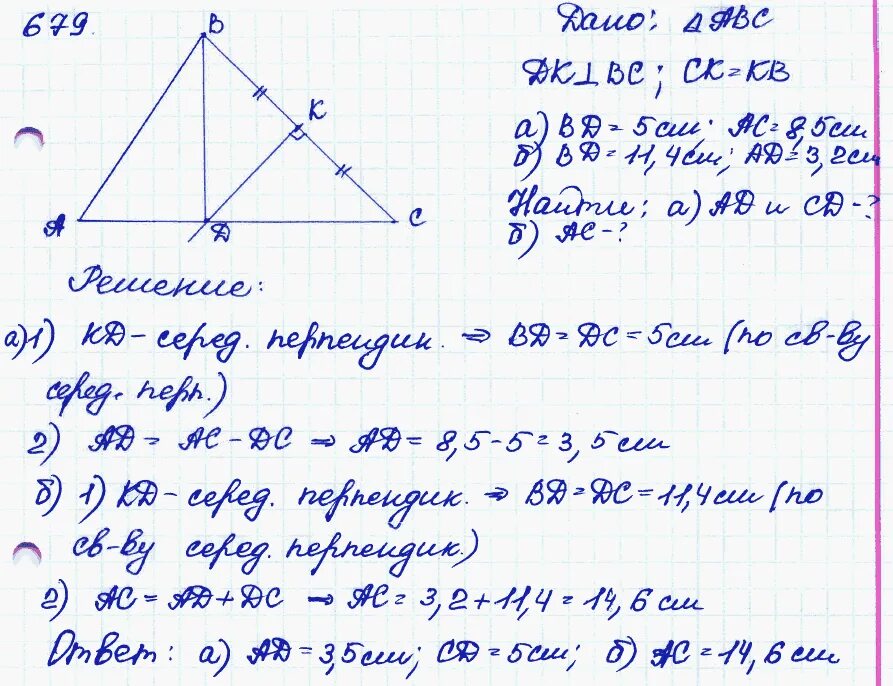 679.
B
K
A
D
C
Дано: △ABC
DK⊥BC; CK=KB
а) BD=5см; AC=8,5см
б) BD=11,4см; AD=3,2см
Найти: а) AD и CD-?
б) AC-?
Решение:
а) 1) KD-серед. перпендик. ⇒ BD=DC=5см (по св-ву
серед. перп.)
2) AD = AC-DC ⇒ AD= 8,5-5=3,5см
б) 1) KD-серед. перпендик. ⇒ BD=DC=11,4см (по
св-ву серед. перпендик.)
2) AC=AD+DC ⇒ AC= 3,2+11,4=14,6 см
Ответ: а) AD=3,5см; CD=5см; б) AC=14,6 см